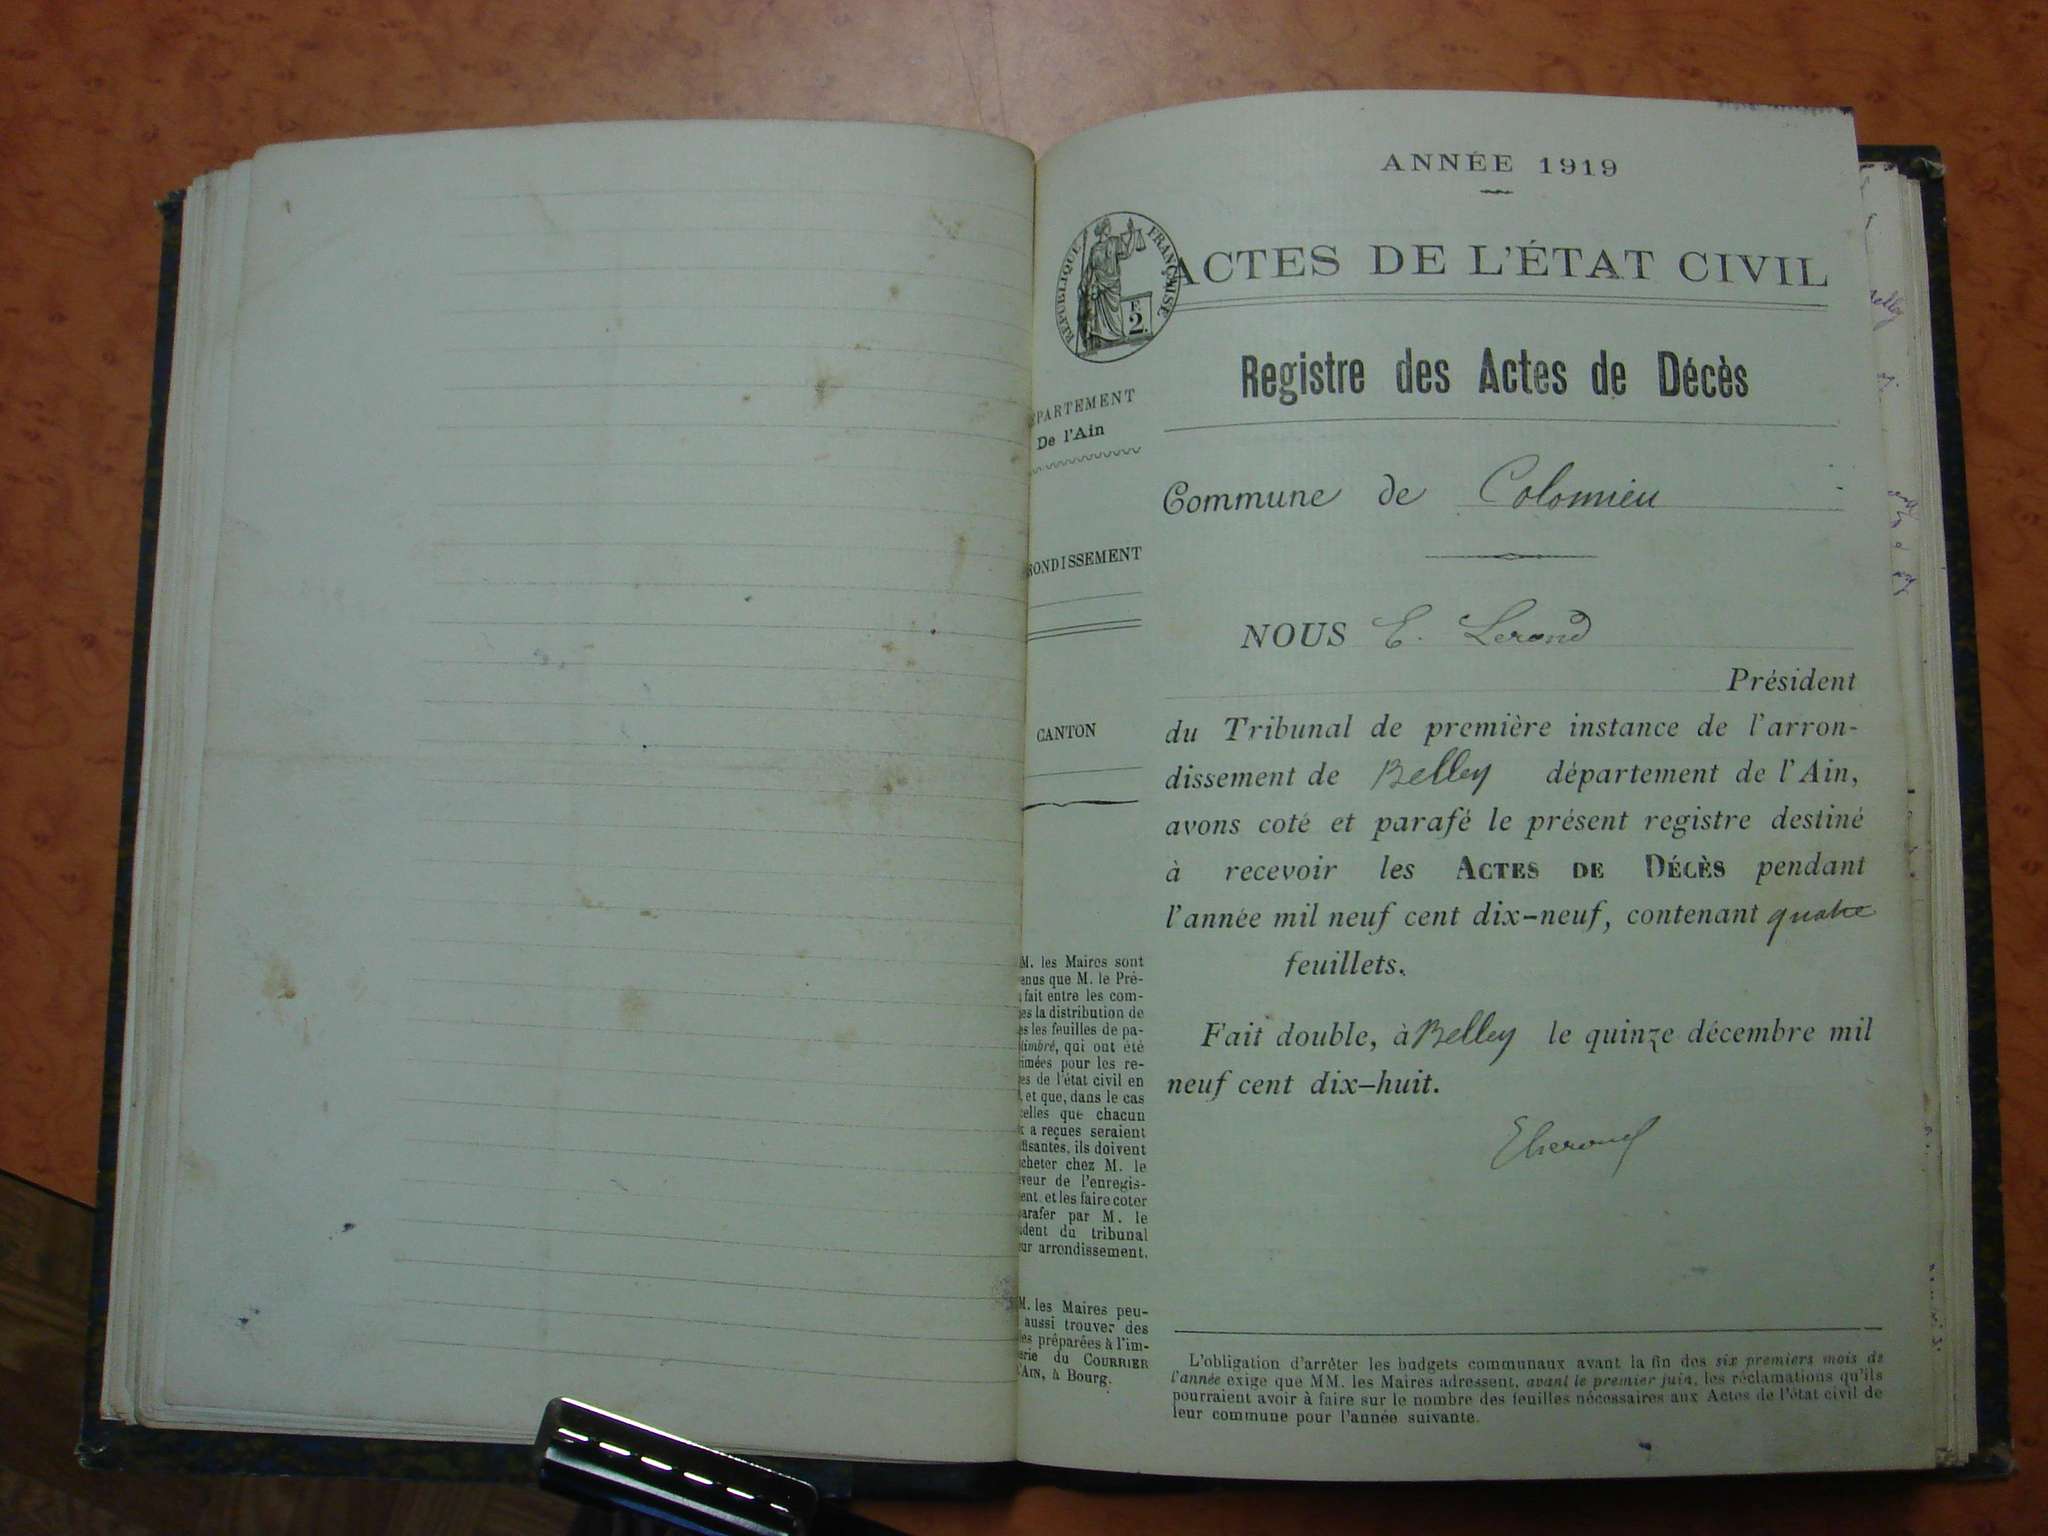 ANNÉE 1919
RÉPUBLIQUE FRANÇAISE
F.
2.
ACTES DE L'ÉTAT CIVIL
Registre des Actes de Décès
PARTEMENT
De l'Ain
Commune de Colomieu
RONDISSEMENT
NOUS E. Lerond
Président
CANTON
du Tribunal de première instance de l'arron-
dissement de Belley département de l'Ain,
avons coté et parafé le présent registre destiné
à recevoir les ACTES DE DÉCÈS pendant
l'année mil neuf cent dix-neuf, contenant quatre
feuillets.
Fait double, à Belley le quinze décembre mil
neuf cent dix-huit.
M. les Maires sont
enus que M. le Pré-
fait entre les com-
es la distribution de
es les feuilles de pa-
timbré, qui ont été
rimées pour les re-
es de l'état civil en
, et que, dans le cas
celles que chacun
x a reçues seraient
ffisantes, ils doivent
cheter chez M. le
eveur de l'enregis-
ent et les faire coter
parafer par M. le
ident du tribunal
eur arrondissement.
M. les Maires peu-
aussi trouver des
les préparées à l'im-
erie du COURRIER
L'AIN, à Bourg.
L'obligation d'arrêter les budgets communaux avant la fin des six premiers mois de
l'année exige que MM. les Maires adressent, avant le premier juin, les réclamations qu'ils
pourraient avoir à faire sur le nombre des feuilles nécessaires aux Actes de l'état civil de
leur commune pour l'année suivante.